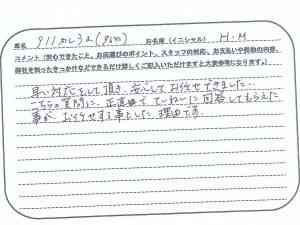 車名 911カレラ2(964) お名前(イニシャル) H.M
コメント(安心できたこと、お店選びのポイント、スタッフの対応、お支払いや買取の内容、
弊社を知ったきっかけなどできるだけ詳しくご記入いただけますと大変参考になります。)
早い対応をして頂き、安心してお任せできました。
こちらの質問に、正直に ていねいに回答してもらえた
事が お任せする事とした理由です。